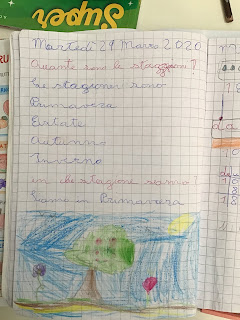 Super
Martedì 24 Marzo 2020
Quante sono le stagioni?
Le stagioni sono
Primavera
Estate
Autunno
Inverno
in che stagione siamo
Siamo in Primavera